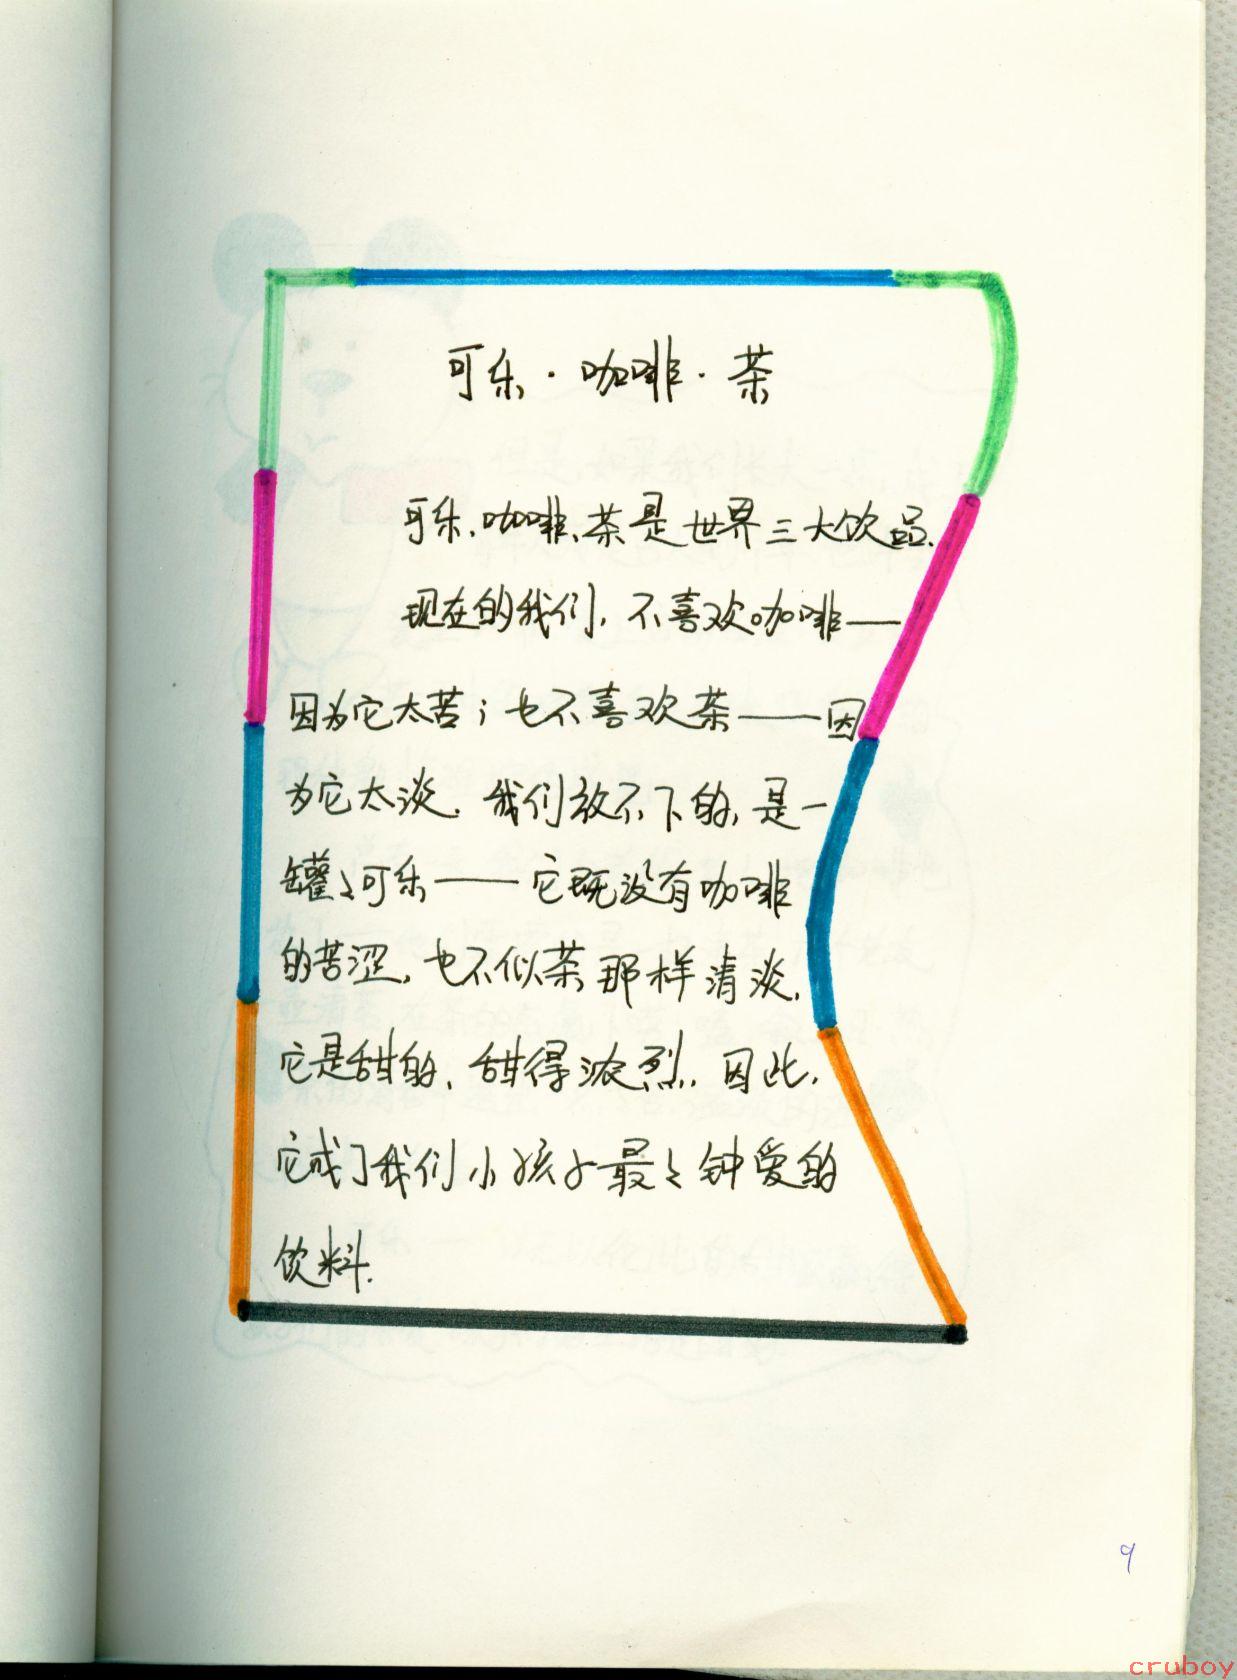 可乐·咖啡·茶
可乐、咖啡、茶是世界三大饮品.
现在的我们,不喜欢咖啡——
因为它太苦;也不喜欢茶——因
为它太淡.我们放不下的,是一
罐々可乐——它既没有咖啡
的苦涩,也不似茶那样清淡,
它是甜的、甜得浓烈.因此,
它成了我们小孩子最々钟爱的
饮料.
9
cruboy